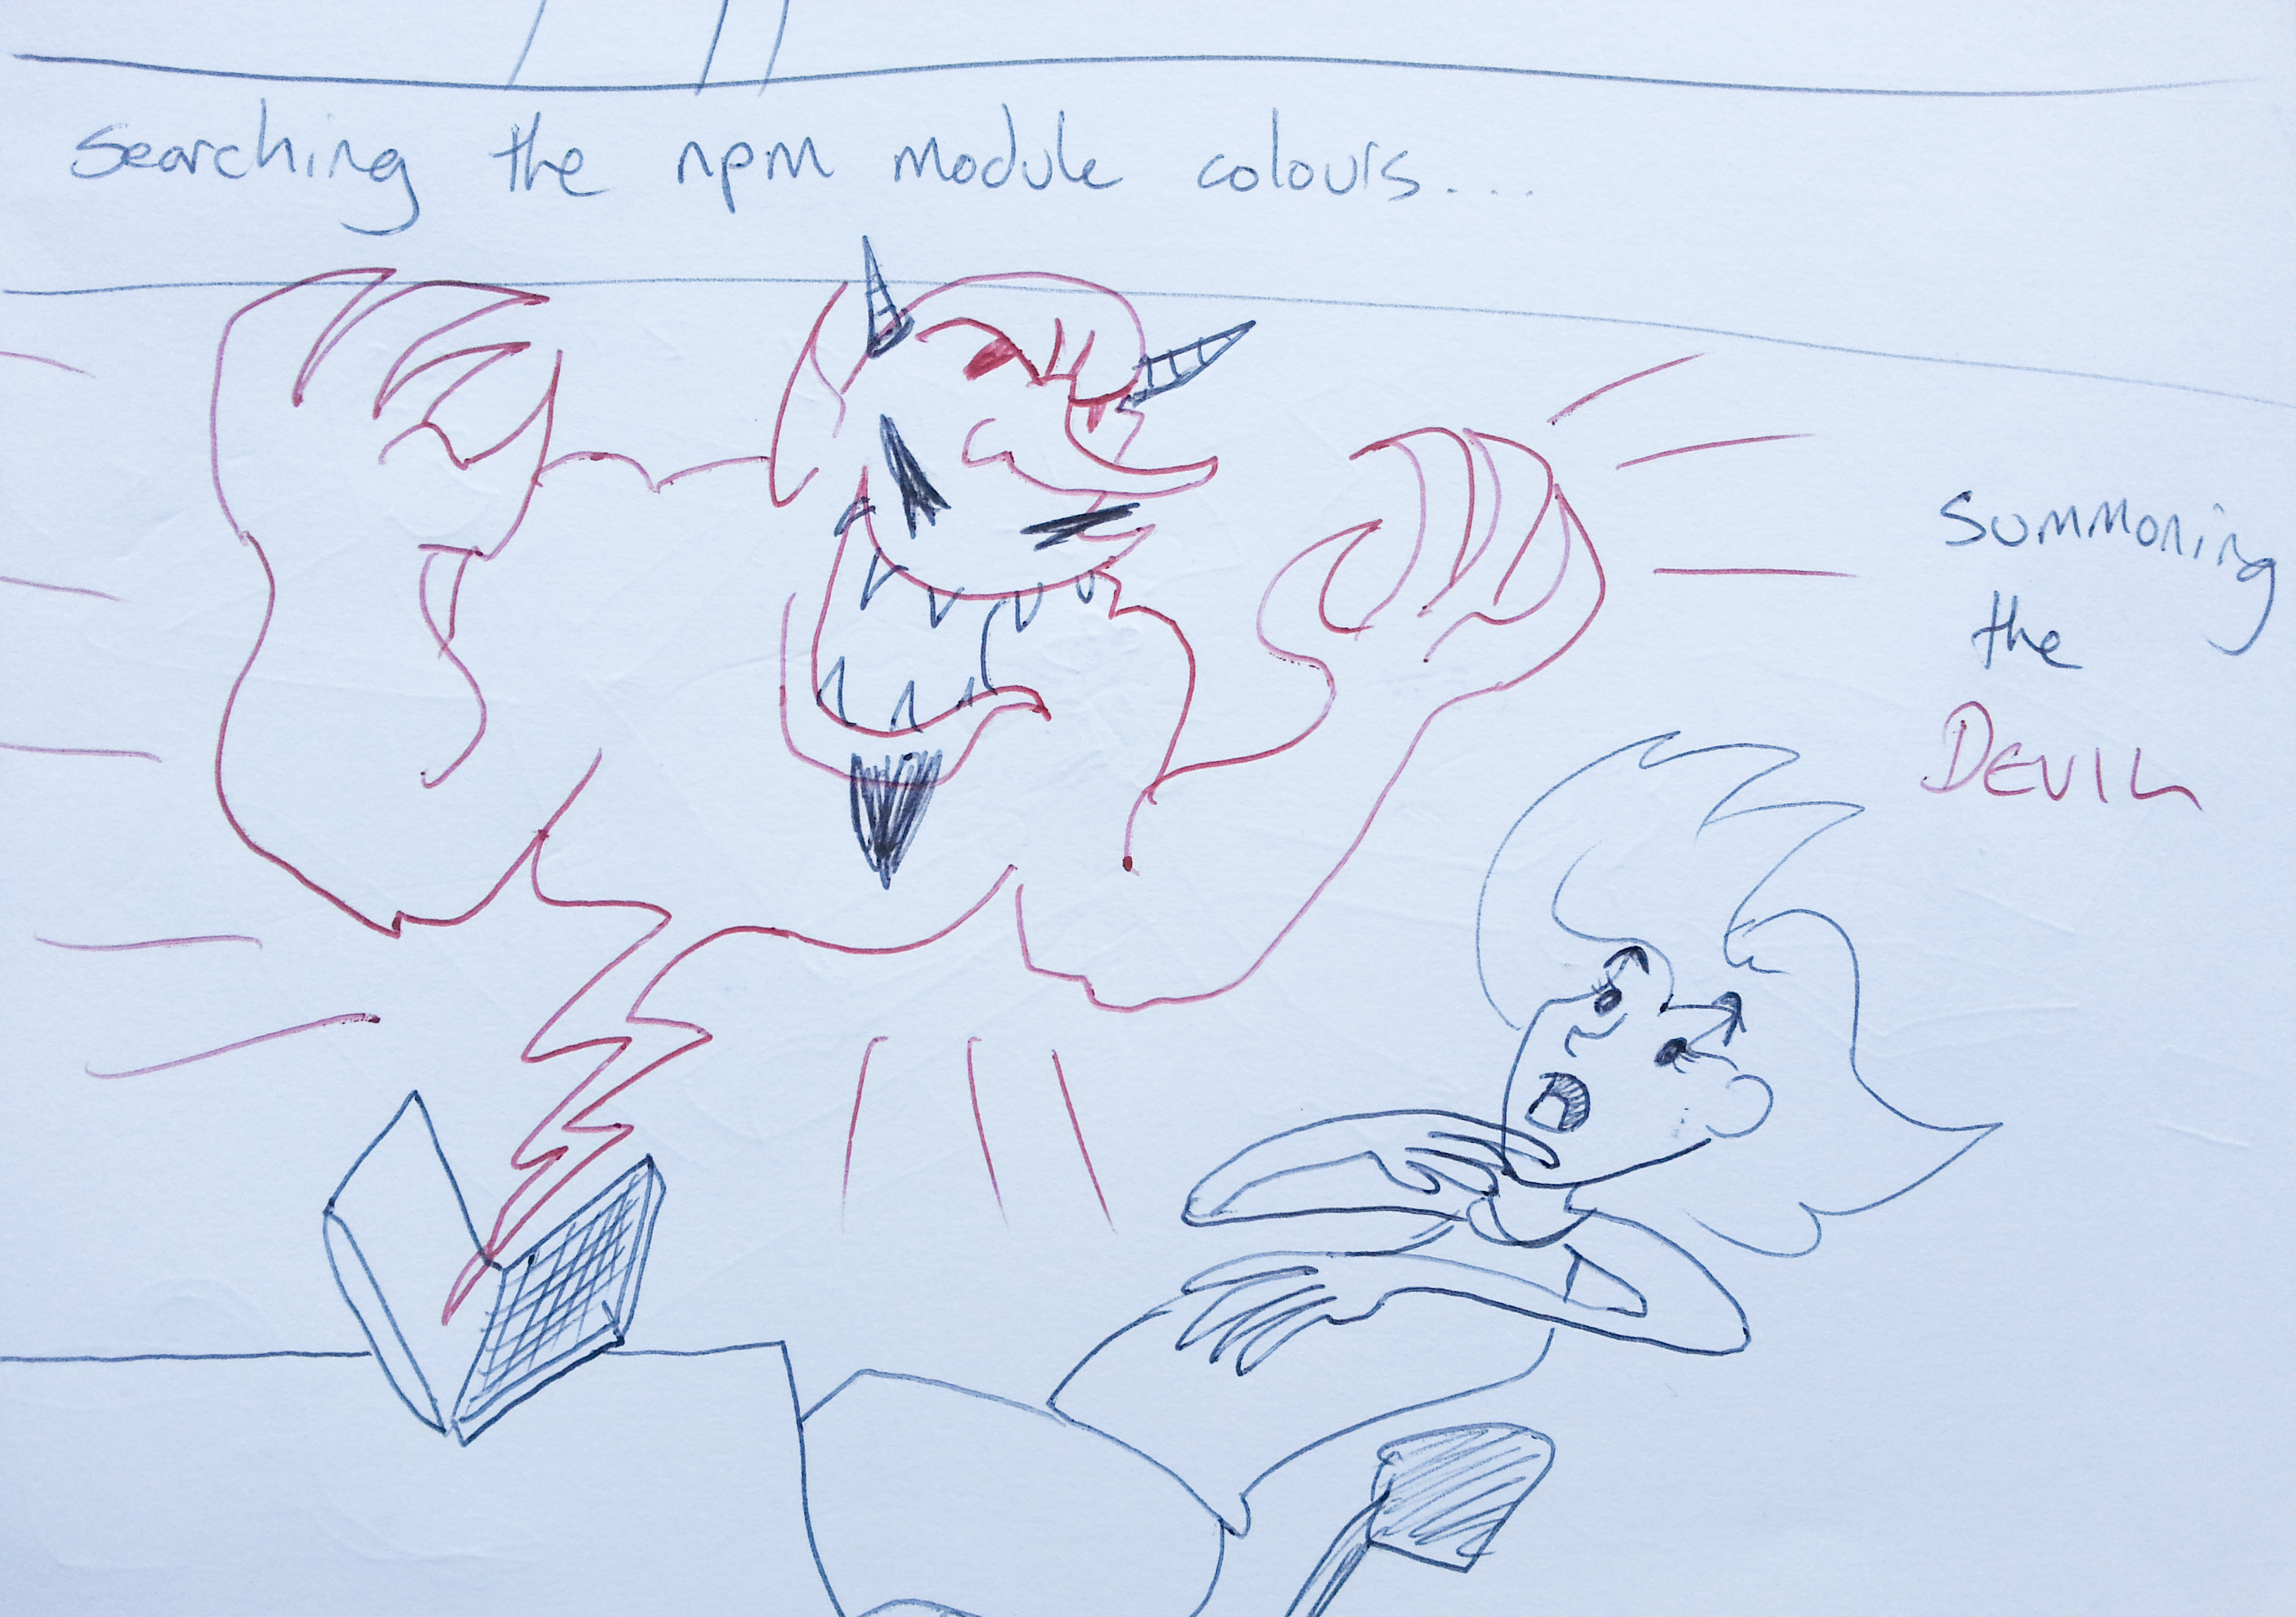 Searching the npm module colours....
Summoning
the
DEVIL